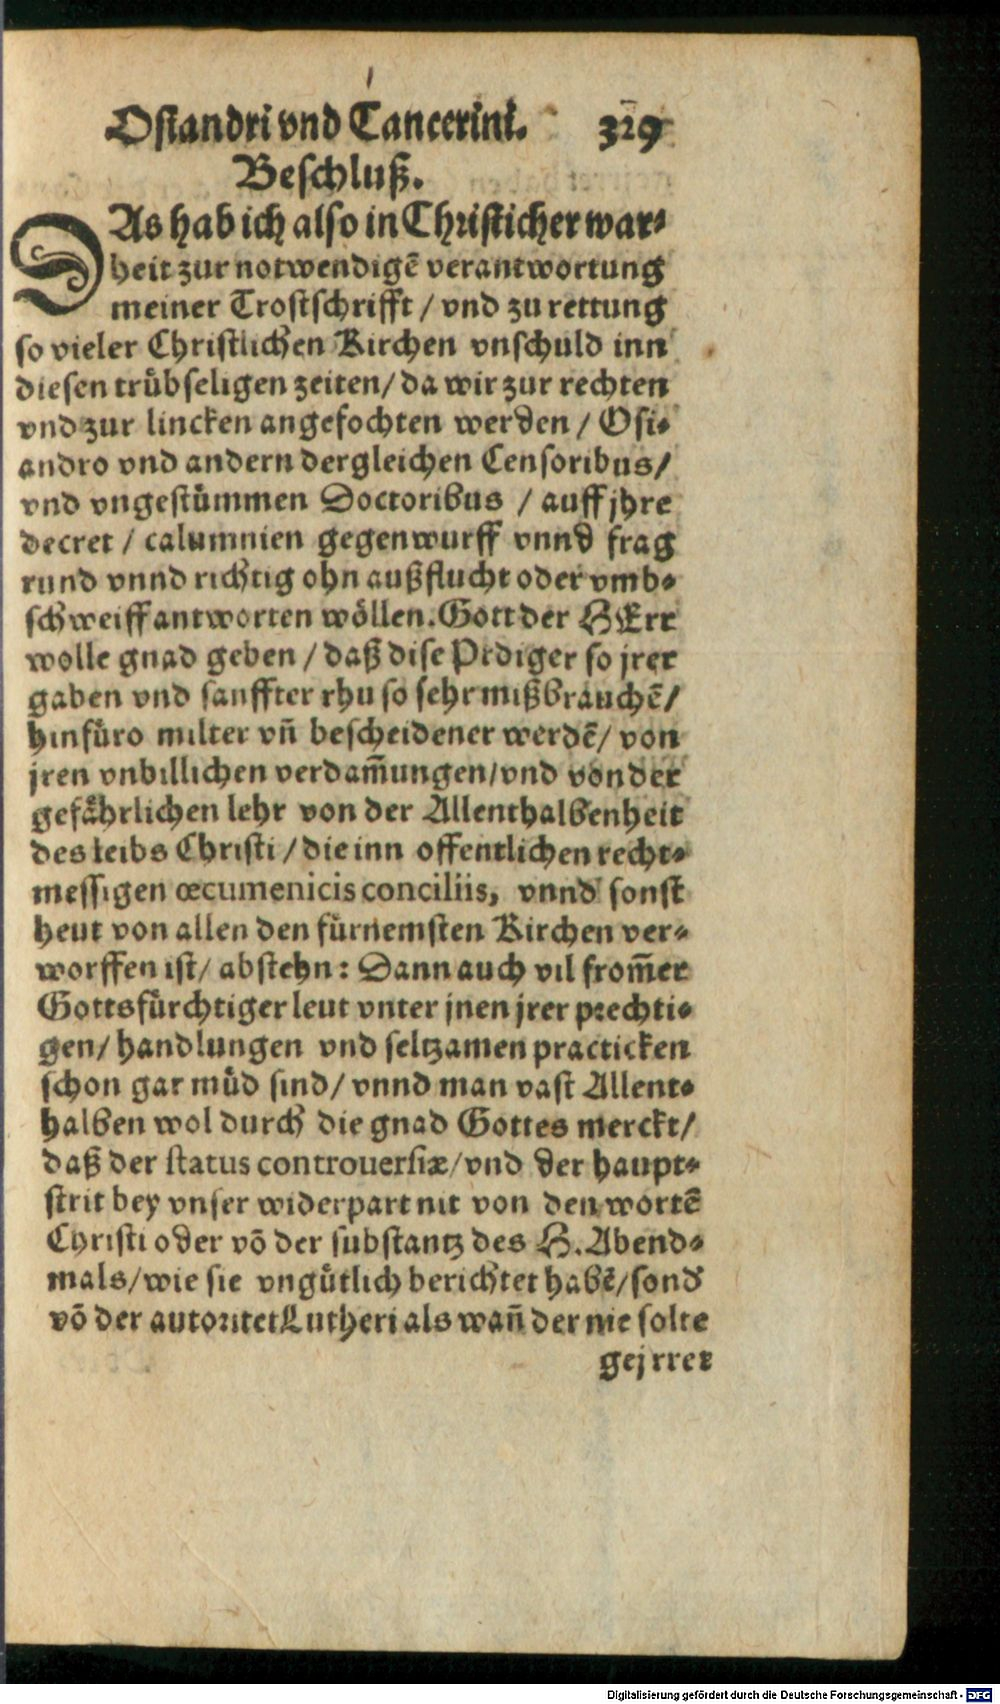 Osiandri vnd Tancerini. 329
Beschluß.
DAs hab ich also in Christicher war⸗
heit zur notwendigē verantwortung
meiner Trostschrifft / vnd zu rettung
so vieler Christlichen Kirchen vnschuld inn
diesen trübseligen zeiten/ da wir zur rechten
vnd zur lincken angefochten werden / Osi⸗
andro vnd andern dergleichen Censoribus/
vnd vngestümmen Doctoribus / auff jhre
decret / calumnien gegenwurff vnnd frag
rund vnnd richtig ohn außflucht oder vmb⸗
schweiff antworten wöllen. Gott der HErr
wolle gnad geben / daß dise Prdiger so jrer
gaben vnd sanffter rhu so sehr mißbrauchē/
hinfüro milter vñ bescheidener werdē/ von
jren vnbillichen verdam̄ungen/vnd von der
gefährlichen lehr von der Allenthalbenheit
des leibs Christi / die inn offentlichen recht⸗
messigen œcumenicis conciliis, vnnd sonst
heut von allen den fürnemsten Kirchen ver⸗
worffen ist/ abstehn: Dann auch vil from̄er
Gottsfürchtiger leut vnter jnen jrer prechti⸗
gen/ handlungen vnd seltzamen practicken
schon gar müd sind/ vnnd man vast Allent⸗
halben wol durch die gnad Gottes merckt/
daß der status controuersiæ/vnd der haupt⸗
strit bey vnser widerpart nit von den wortē
Christi oder võ der substantz des H. Abend⸗
mals/wie sie vngütlich berichtet habē/sond
võ der autoritet Lutheri als wañ der nie solte
gejrret
Digitalisierung gefördert durch die Deutsche Forschungsgemeinschaft - DFG